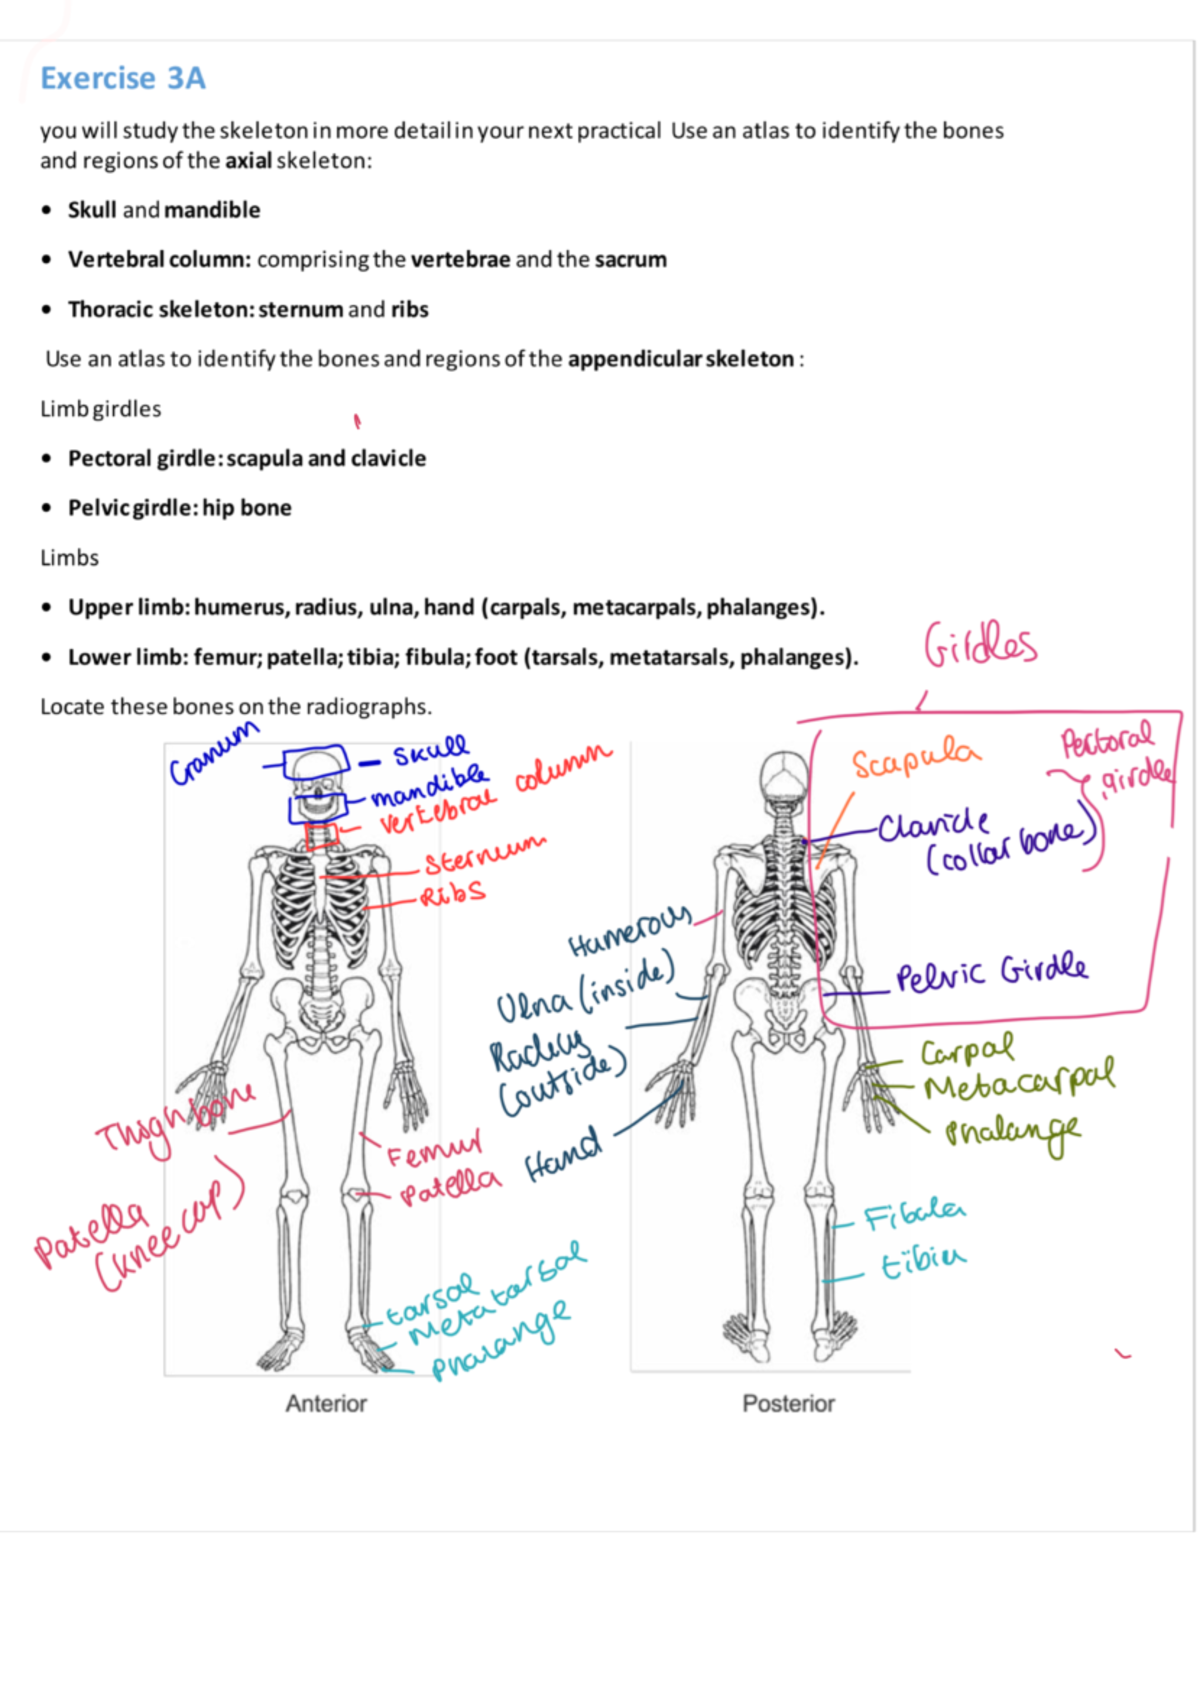 Exercise 3A
you will study the skeleton in more detail in your next practical Use an atlas to identify the bones
and regions of the axial skeleton:
• Skull and mandible
• Vertebral column: comprising the vertebrae and the sacrum
• Thoracic skeleton: sternum and ribs
Use an atlas to identify the bones and regions of the appendicular skeleton :
Limb girdles
• Pectoral girdle: scapula and clavicle
• Pelvic girdle: hip bone
Limbs
• Upper limb: humerus, radius, ulna, hand (carpals, metacarpals, phalanges).
• Lower limb: femur; patella; tibia; fibula; foot (tarsals, metatarsals, phalanges).
Girdles
Locate these bones on the radiographs.
Cranum
Skull
mandible
Vertebrae column
Sterneum
Ribs
Thign bone
Femur
Patella
Patella
(knee cap)
tarsal
Metatarsal
Phalange
Anterior
Scapula
Pectoral
girdle
Clavicle
(collar bone)
Humerous
Ulna (inside)
Radius
(outside)
Hand
Pelvic Girdle
Carpal
Metacarpal
Phalange
Fibula
tibia
Posterior